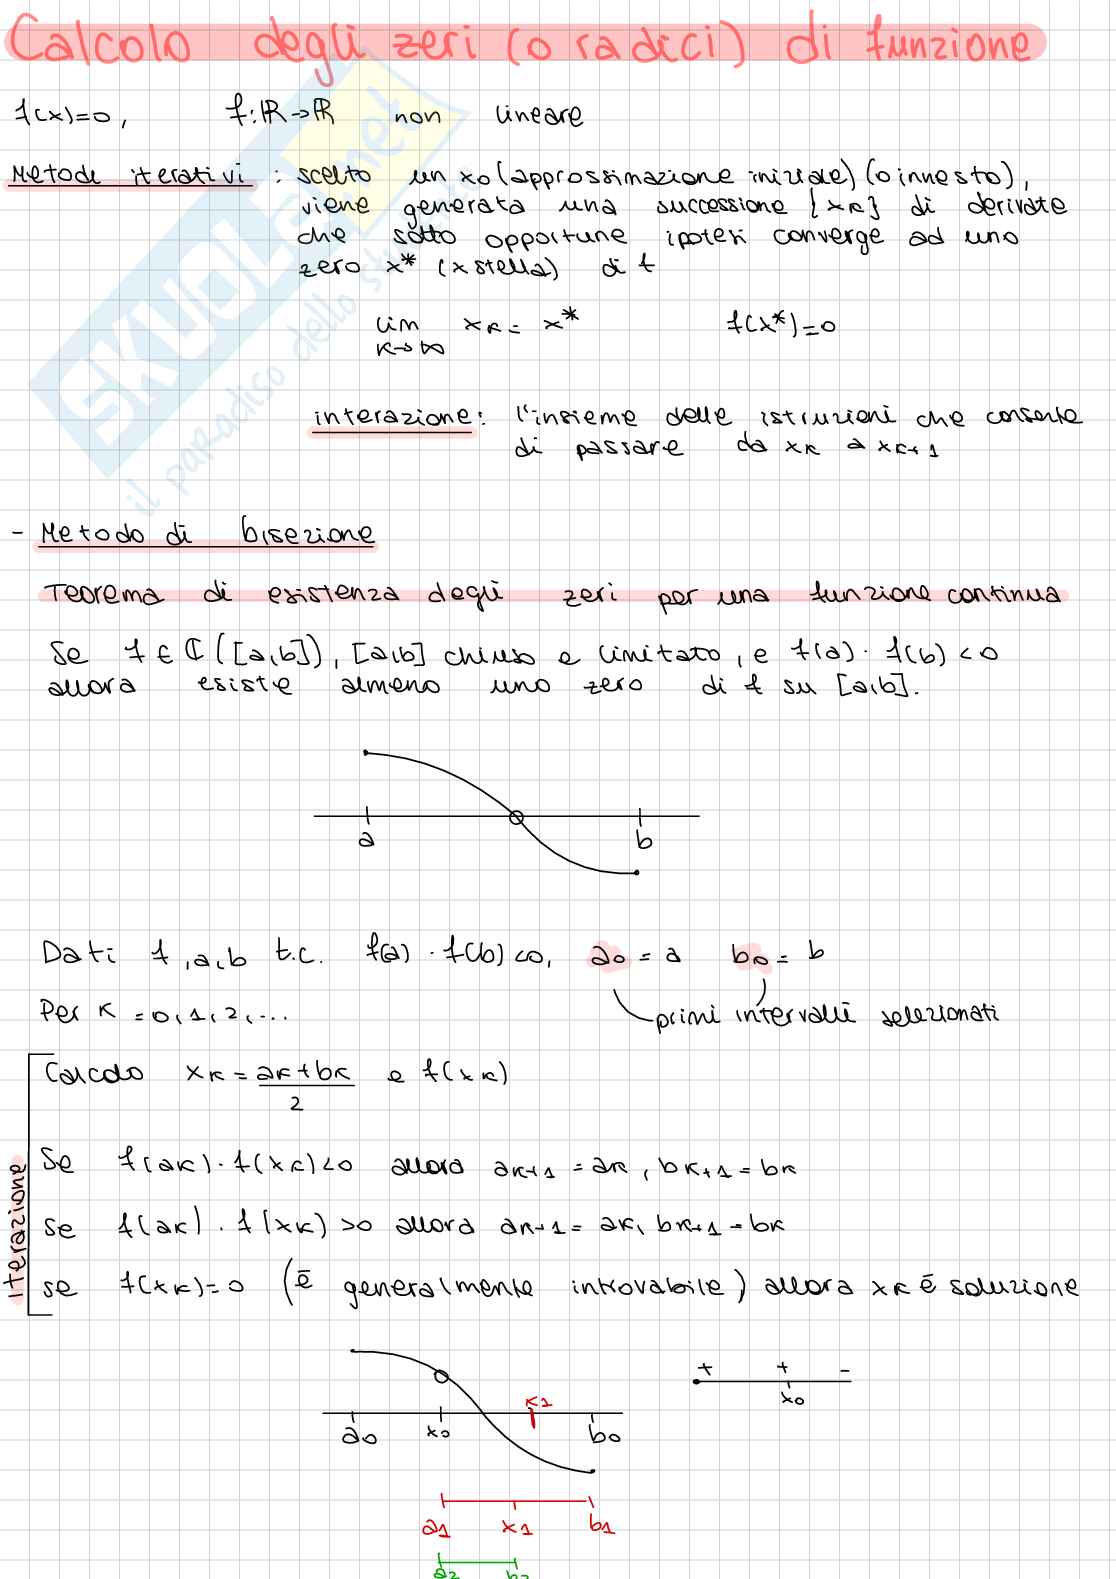 Calcolo degli zeri (o radici) di funzione
f(x)=0, f:ℝ→ℝ non lineare
Metodi iterativi: scelto un x0 (approssimazione iniziale) (o innesto),
viene generata una successione {xk} di derivate
che sotto opportune ipotesi converge ad uno
zero x* (x stella) di f
lim xk = x* f(x*)=0
k→∞
interazione: l'insieme delle istruzioni che consente
di passare da xk a xk+1
- Metodo di bisezione
Teorema di esistenza degli zeri per una funzione continua
Se f ∈ ℂ([a,b]), [a,b] chiuso e limitato, e f(a)·f(b)<0
allora esiste almeno uno zero di f su [a,b].
a b
Dati f, a, b t.c. f(a)·f(b)<0, a0 = a b0 = b
Per k = 0, 1, 2, ... primi intervalli selezionati
Calcolo xk = ak+bk / 2 e f(xk)
Se f(ak)·f(xk)<0 allora ak+1 = ak, bk+1 = bk
Se f(ak)·f(xk)>0 allora ak+1 = ak, bk+1 = bk
se f(xk)=0 (è generalmente introvabile) allora xk è soluzione
Iterazione
+ + -
x0
x1
a0 x0 b0
a1 x1 b1
a2 b2
SKUOLA.net
il paradiso dello studente